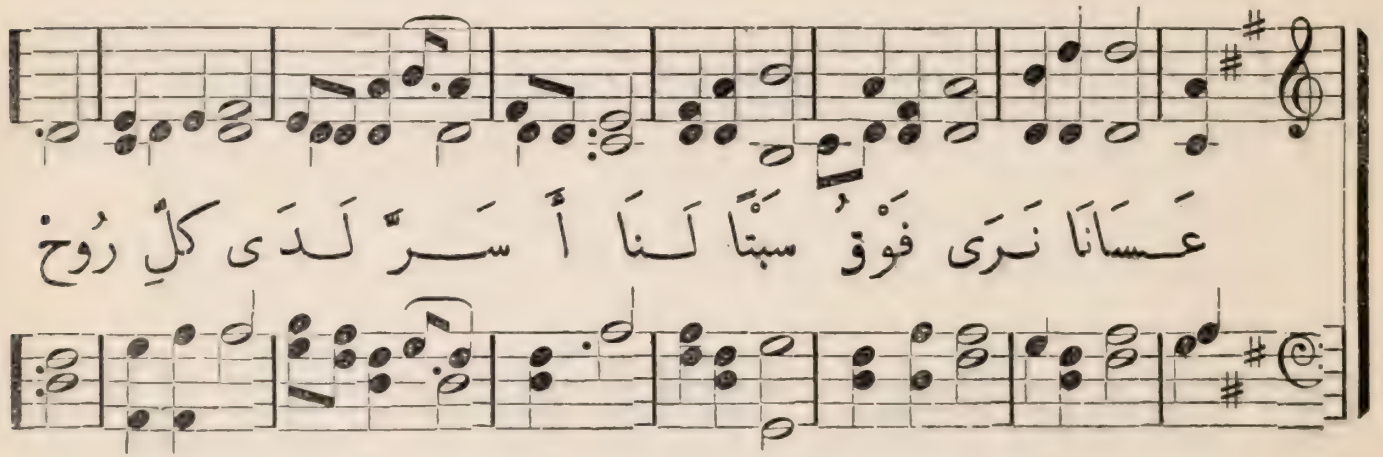 عَـسَانَا نَـرَى فَوْقُ سبْتًا لَـنَا أَ سَـرَّ لَـدَ ى كلِّ رُوح